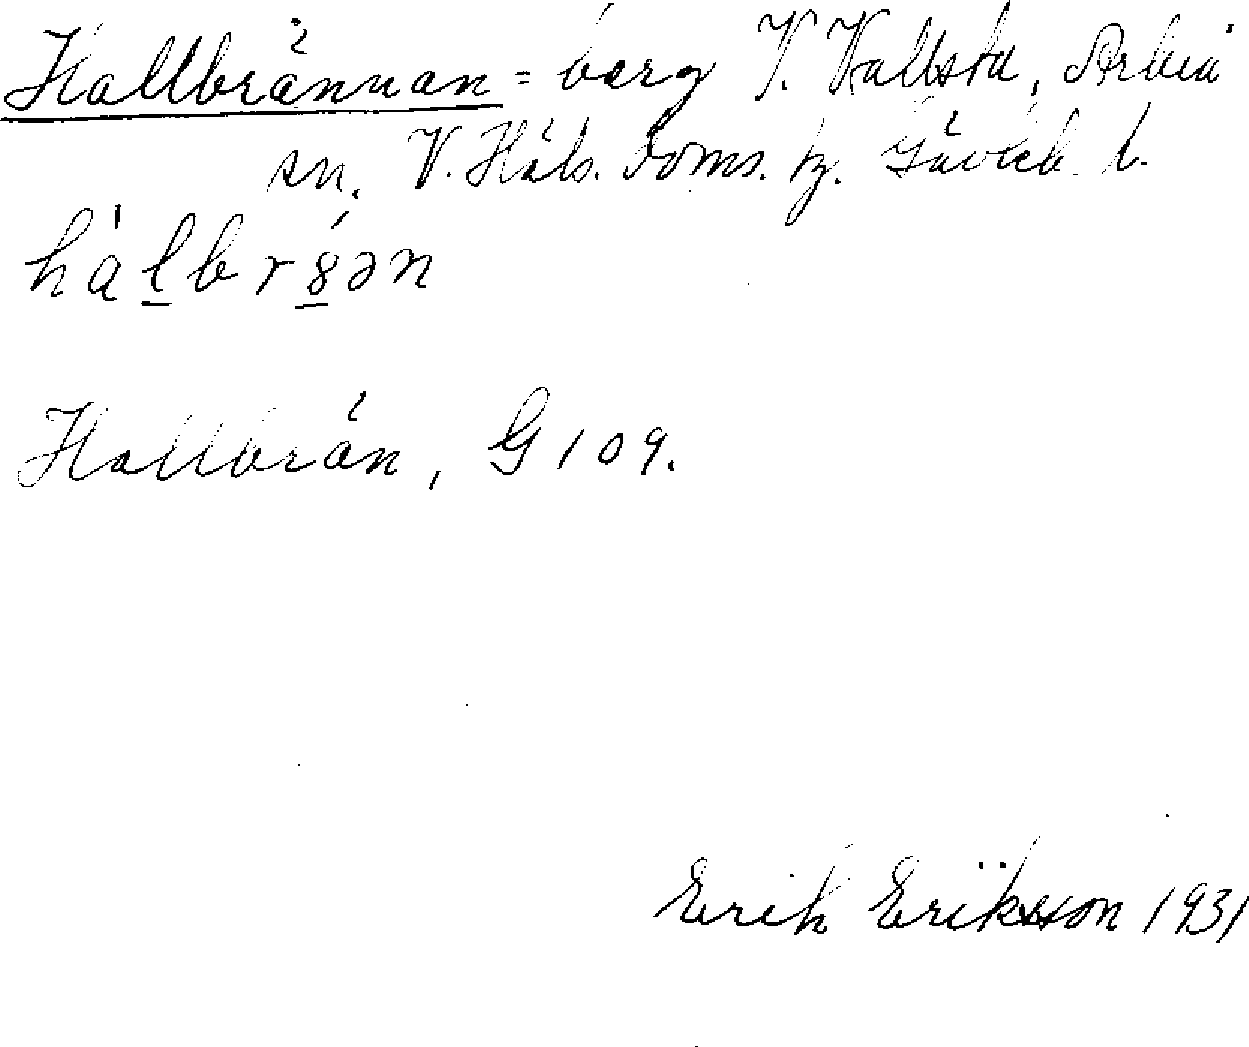 Hallbrännan = berg V. Kallsta, Arbrå
sn. V. Häls. doms. tg. Gävleb. l.
Hallbrän, G 109.
Erik Eriksson 1931